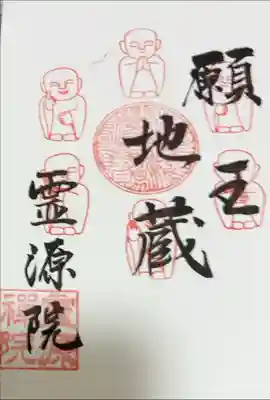 願王
地蔵
霊源院